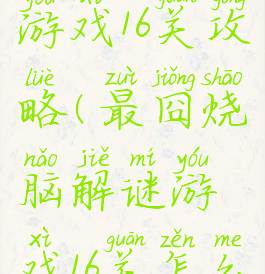 yóu xì guān gōng
游戏16关攻
lüè zuì jiǒng shāo
略(最囧烧
nǎo jiě mí yóu
脑解谜游
xì guān zěn me
戏16关怎么